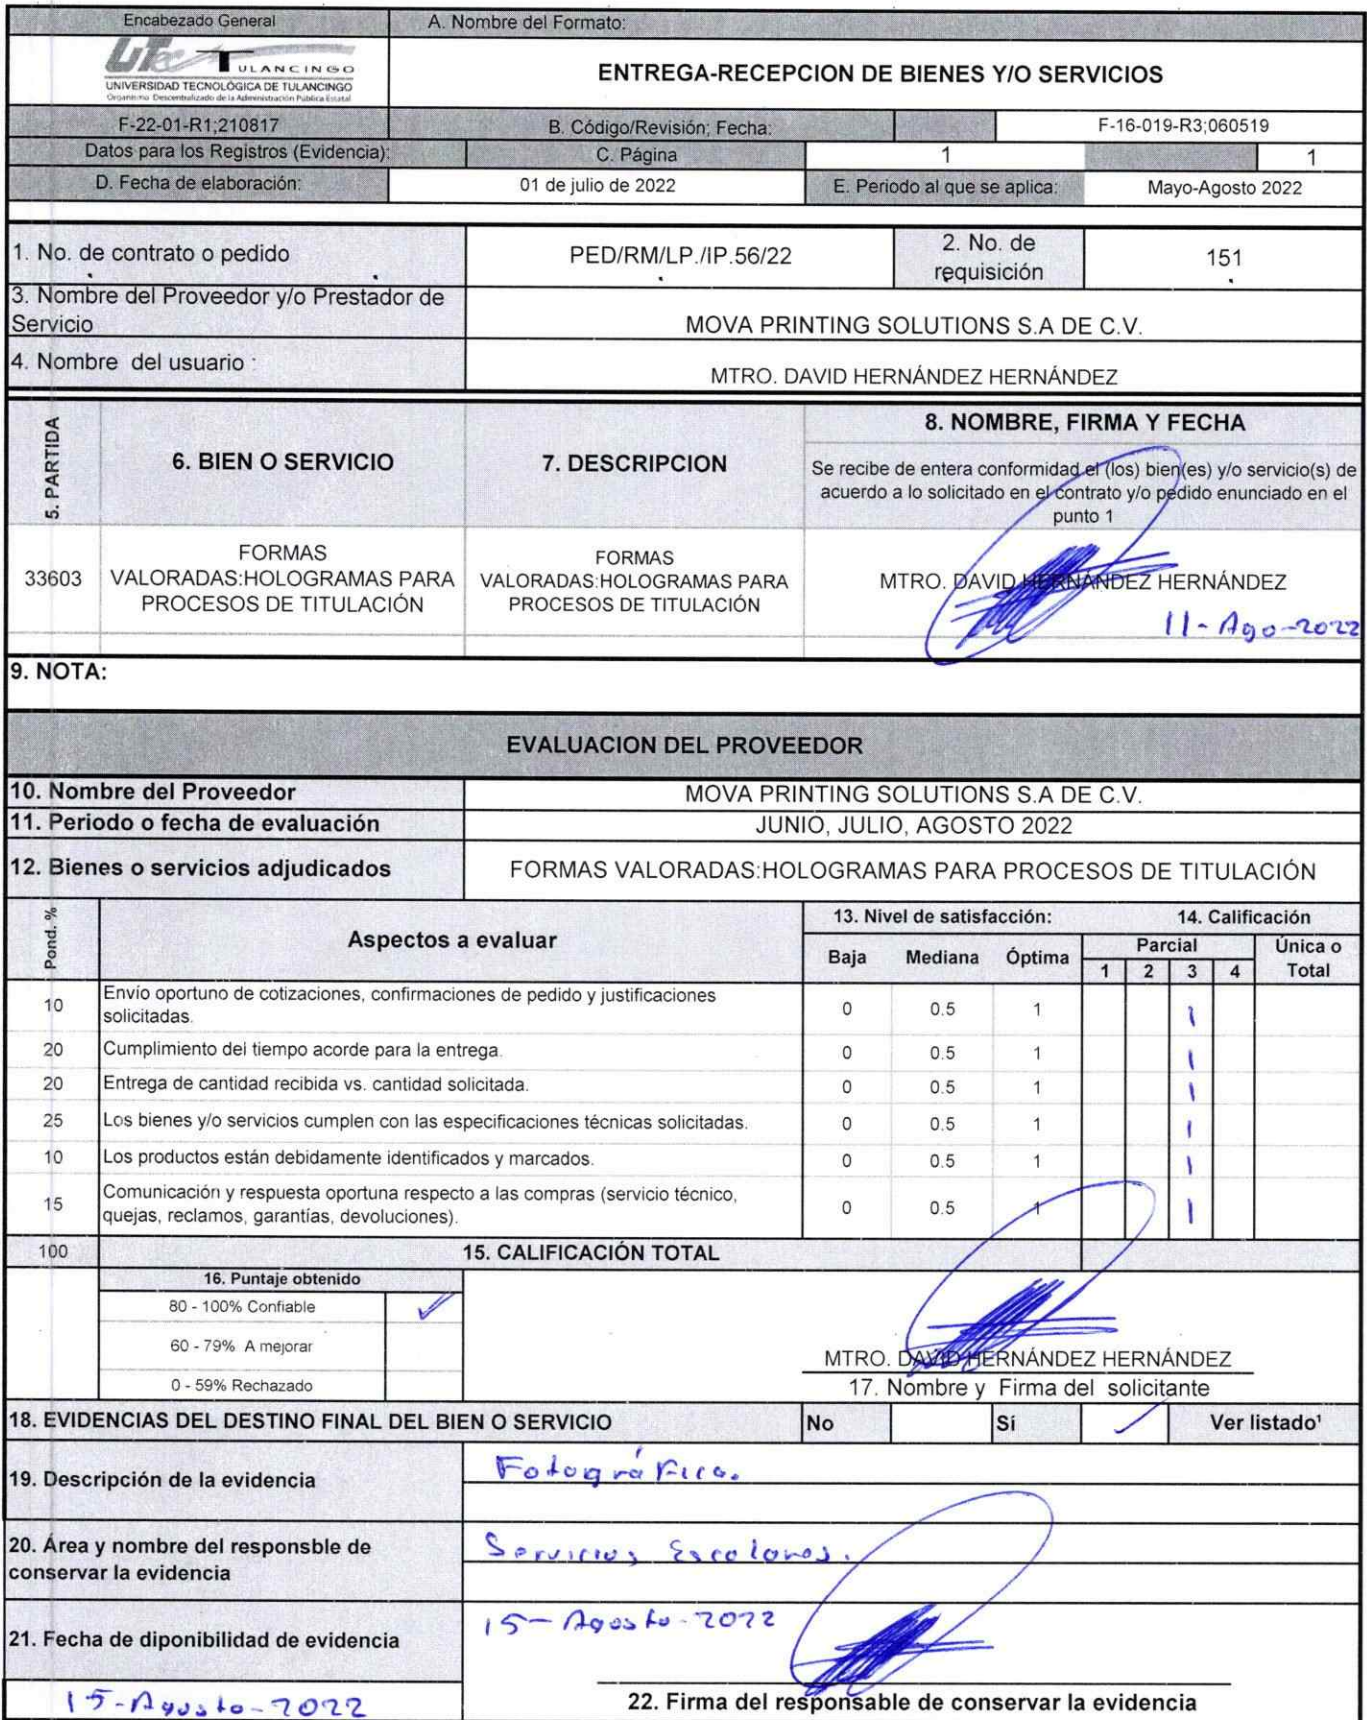 Encabezado General
A. Nombre del Formato:
UTec TULANCINGO
UNIVERSIDAD TECNOLÓGICA DE TULANCINGO
Organismo Descentralizado de la Administración Pública Estatal
ENTREGA-RECEPCION DE BIENES Y/O SERVICIOS
F-22-01-R1;210817
B. Código/Revisión; Fecha:
F-16-019-R3;060519
Datos para los Registros (Evidencia):
C. Página
1
1
D. Fecha de elaboración:
01 de julio de 2022
E. Periodo al que se aplica:
Mayo-Agosto 2022
1. No. de contrato o pedido
PED/RM/LP./IP.56/22
2. No. de
requisición
151
3. Nombre del Proveedor y/o Prestador de
Servicio
MOVA PRINTING SOLUTIONS S.A DE C.V.
4. Nombre del usuario :
MTRO. DAVID HERNÁNDEZ HERNÁNDEZ
5. PARTIDA
6. BIEN O SERVICIO
7. DESCRIPCION
8. NOMBRE, FIRMA Y FECHA
Se recibe de entera conformidad el (los) bien(es) y/o servicio(s) de
acuerdo a lo solicitado en el contrato y/o pedido enunciado en el
punto 1
33603
FORMAS
VALORADAS:HOLOGRAMAS PARA
PROCESOS DE TITULACIÓN
FORMAS
VALORADAS:HOLOGRAMAS PARA
PROCESOS DE TITULACIÓN
MTRO. DAVID HERNÁNDEZ HERNÁNDEZ
11-Ago-2022
9. NOTA:
EVALUACION DEL PROVEEDOR
10. Nombre del Proveedor
MOVA PRINTING SOLUTIONS S.A DE C.V.
11. Periodo o fecha de evaluación
JUNIO, JULIO, AGOSTO 2022
12. Bienes o servicios adjudicados
FORMAS VALORADAS:HOLOGRAMAS PARA PROCESOS DE TITULACIÓN
Pond. %
Aspectos a evaluar
13. Nivel de satisfacción:
14. Calificación
Baja
Mediana
Óptima
Parcial
Única o
Total
1 2 3 4
10
Envío oportuno de cotizaciones, confirmaciones de pedido y justificaciones
solicitadas.
0 0.5 1 1
20 Cumplimiento del tiempo acorde para la entrega. 0 0.5 1 1
20 Entrega de cantidad recibida vs. cantidad solicitada. 0 0.5 1 1
25 Los bienes y/o servicios cumplen con las especificaciones técnicas solicitadas. 0 0.5 1 1
10 Los productos están debidamente identificados y marcados. 0 0.5 1 1
15
Comunicación y respuesta oportuna respecto a las compras (servicio técnico,
quejas, reclamos, garantías, devoluciones).
0 0.5 1 1
100
15. CALIFICACIÓN TOTAL
16. Puntaje obtenido
80 - 100% Confiable
60 - 79% A mejorar
0 - 59% Rechazado
MTRO. DAVID HERNÁNDEZ HERNÁNDEZ
17. Nombre y Firma del solicitante
18. EVIDENCIAS DEL DESTINO FINAL DEL BIEN O SERVICIO
No
Sí
Ver listado¹
19. Descripción de la evidencia
Fotográfica.
20. Área y nombre del responsble de
conservar la evidencia
Servicios Escolares.
21. Fecha de diponibilidad de evidencia
15-Agosto-2022
15-Agosto-2022
22. Firma del responsable de conservar la evidencia